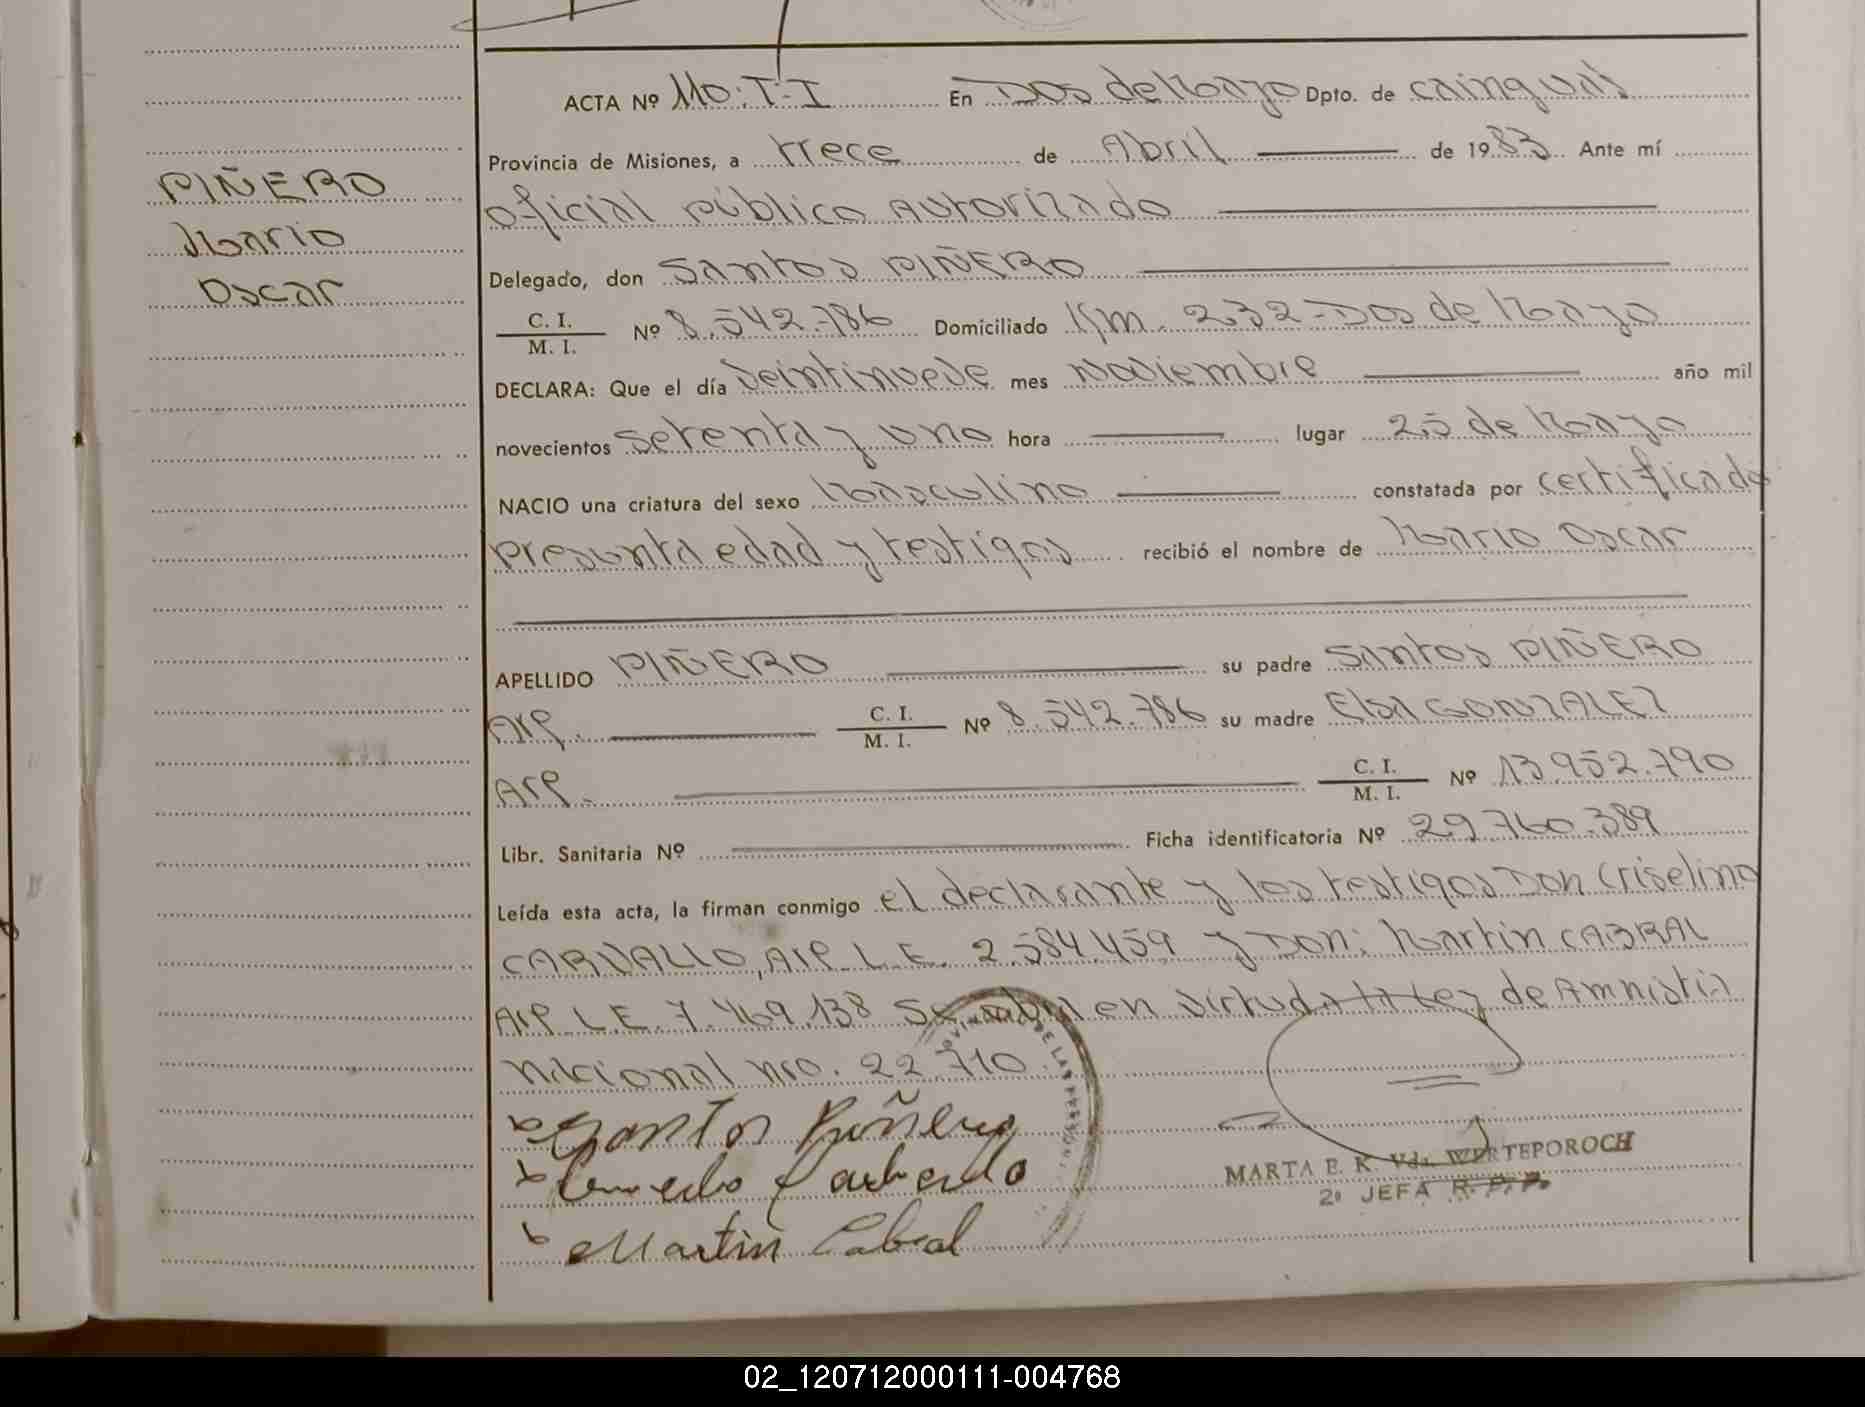 PIÑERO
Mario
Oscar
ACTA Nº 110: T-I En Dos de Mayo Dpto. de cainguás
Provincia de Misiones, a trece de Abril de 1983 Ante mí
oficial público Autorizado
Delegado, don Santos PIÑERO
C. I.
M. I.
Nº 8.542.786 Domiciliado Km. 232-Dos de Mayo
DECLARA: Que el día veintinueve mes noviembre año mil
novecientos setenta y uno hora lugar 25 de Mayo
NACIO una criatura del sexo Masculino constatada por certificado
presunta edad y testigos recibió el nombre de Mario Oscar
APELLIDO PIÑERO su padre Santos PIÑERO
Arg. C. I.
M. I.
Nº 8.542.786 su madre Elsa GONZALEZ
Arg. C. I.
M. I.
Nº 13.952.790
Libr. Sanitaria Nº Ficha identificatoria Nº 29.760.389
Leída esta acta, la firman conmigo el declarante y los testigos Don Criselino
CARVALLO, Arg. L.E. 2.584.459 y Don: Martin CABRAL
Arg. L.E. 7.469.138 en virtud a la Ley de Amnistia
Nacional nro. 22.710
Santos Piñero
Martin Cabral
MARTA E. K. Vda. WERTEPOROCH
2ª JEFA R. P. P.
02_120712000111-004768